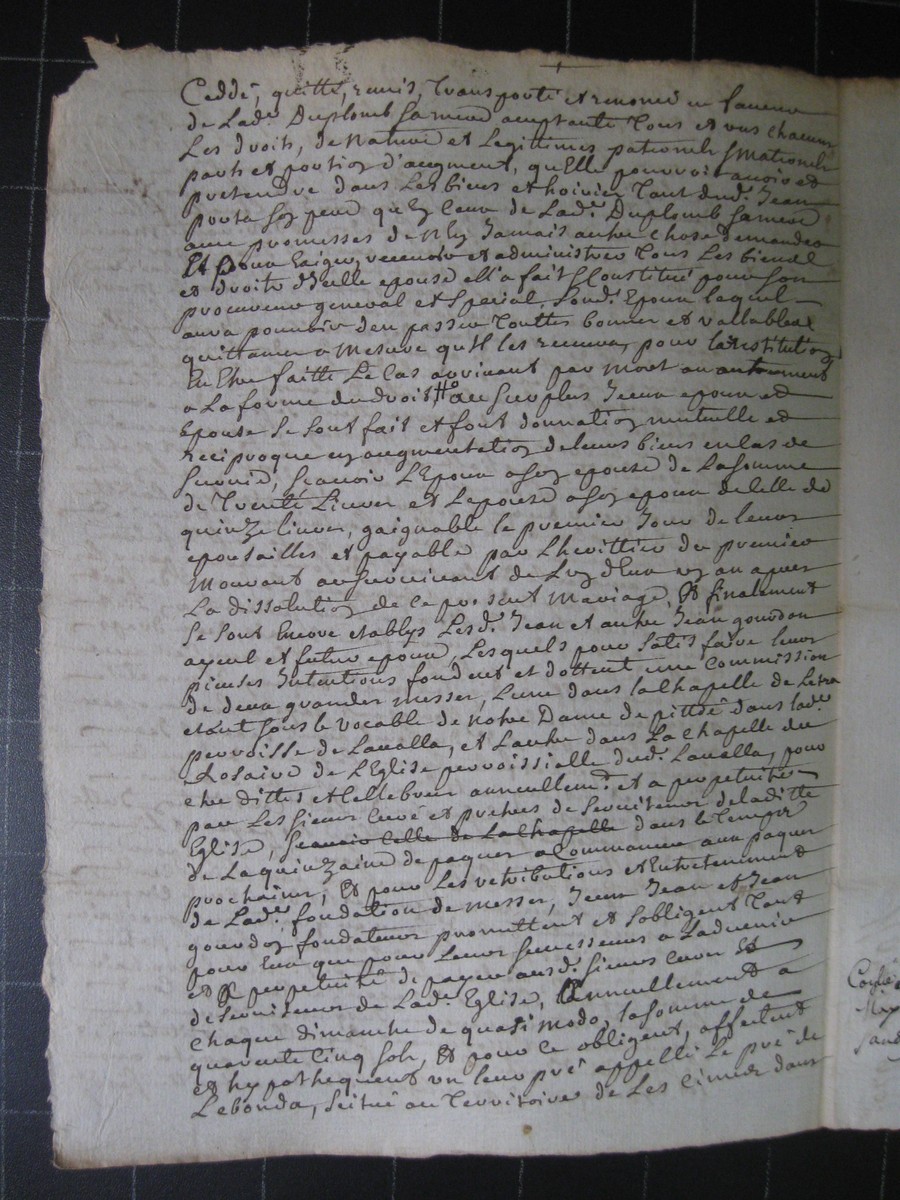 Ceddé, quitté, remis, Transporté et renoncé en faveur
de Lad.e Duplomb sa mere acceptante Tous et uns chacuns
Les droits, de Nature et Legitimes paternels Maternels
parts et portion d'augment, qu'Elle pourroit avoir et
pretendre dans Les biens et hoiries Tant dud. Jean
prota son pere qu'En Ceux de Lad.e Duplomb sa mere
avec promesses de N'En Jamais autre Chose demander
Et pour Exiger, recevoir et administrer Tous Les biens
et droits d'Elle epouse Ell'a fait & Constitué pour son
procureur general et special, Sond. Epoux lequel
aura pouvoir d'en passer Touttes bonnes et vallables
quittances a Mesure qu'Il les recevra, pour la restitution
En Etre faitte Le Cas arrivant par mort ou autrement
a La forme du droit, au surplus Iceux epoux et
Epouse Se sont fait et font donnation mutuelle et
reciproque en augmentation de leurs biens en cas de
survie, sçavoir L'Epoux a son epouse de La somme
de Trente Livres et L'epouse a son epoux de Celle de
quinze livres, gaignable le premier Jour de leurs
epousailles et payable par L'herittier du premier
Mourant au survivant de L'un d'Eux un an apres
La dissolution de Ce present mariage, Et finalement
se sont Encore etablys Lesd. Jean et autre Jean gourdon
ayeul et futur epoux, Lesquels pour satisfaire leurs
pieuses Intentions fondent et dottent une Commission
de deux grandes messes, L'une dans la Chapelle de Letra
etant sous le vocable de Notre Dame de pittié dans lad.e
parroisse de Lavalla, et L'autre dans La Chapelle du
Rosaire de L'Eglise parroissialle dud. Lavalla, pour
etre dittes et Cellebrees annuellem.t et a perpetuité
par Les sieurs Curé et prêtres de Serviteurs de laditte
Eglise, sçavoir Celle de La Chapelle dans le Temps
de La quinzaine de paques a Commancer aux paques
prochaines, Et pour Les retributions et Entretenement
de Lad.e fondation de messes, Iceux Jean et Jean
gourdon fondateurs promettent et s'obligent Tant
pour Eux que pour Leurs successeurs a L'advenir
et a perpetuité de payer ausd. sieurs Curé Et
de Serviteurs de Lad.e Eglise, annuellement a
Chaque dimanche de quasimodo, la somme de
quarente Cinq sols, Et pour Ce obligent, affectent
et hypothequent un leur pré appellé Le pré de
Lebonda, Scitué au Territoire de Les Cimes dans